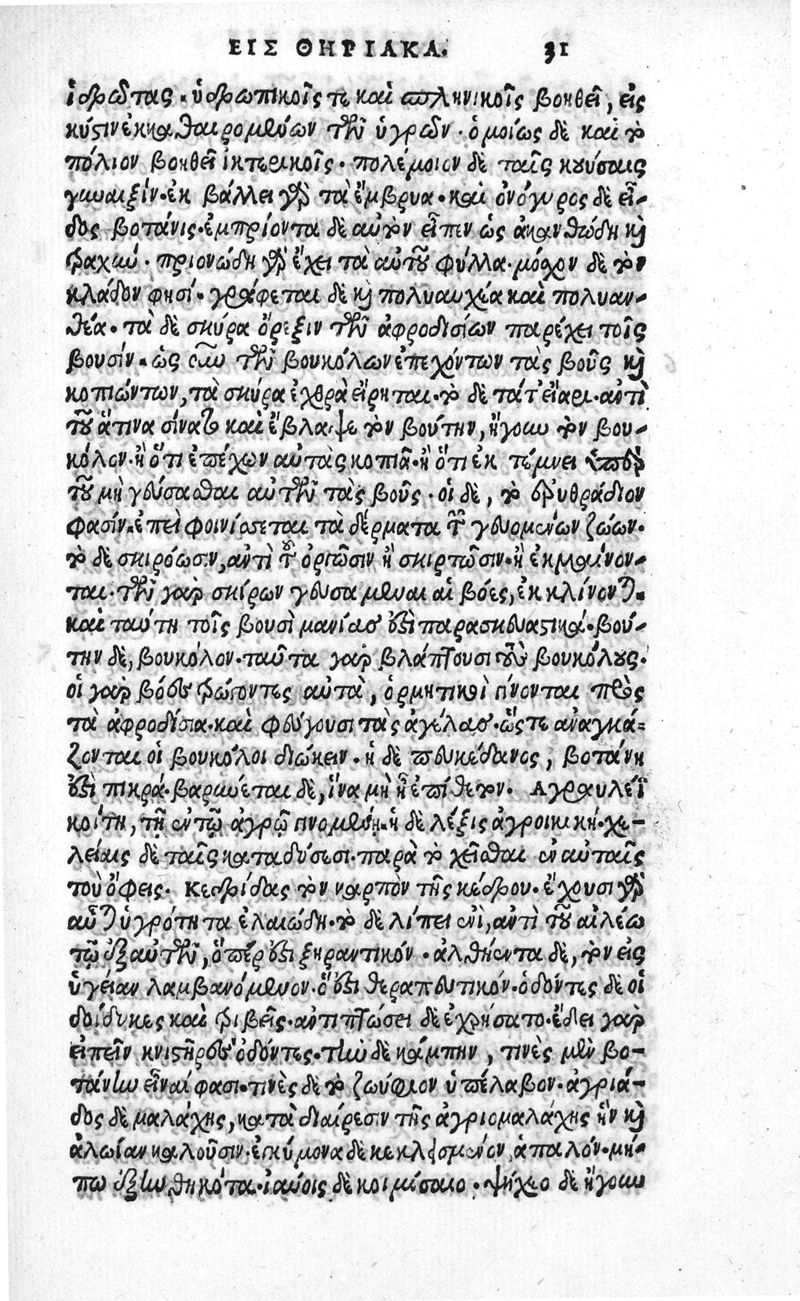 ΕΙΣ ΘΗΡΙΑΚΑ. 31
ἱδρῶτας. ὑδρωπικοῖς τε καὶ σπληνικοῖς βοηθεῖ, εἰς
κύστιν ἐκκαθαιρομένων τῶν ὑγρῶν. ὁμοίως δὲ καὶ τὸ
πόλιον βοηθεῖ ἰκτερικοῖς. πολέμοιον δὲ ταῖς κυούσαις
γυναιξίν. ἐκ βάλλει γὰρ τὰ ἔμβρυα. καὶ ὀνόγυρος δὲ εἶ-
δος βοτάνης. ἐμπρίοντα δὲ αὐτὸν εἶπεν ὡς ἀκανθώδη καὶ
τραχύν. πριονώδη γὰρ ἔχει τὰ αὐτοῦ φύλλα. μόσχον δὲ τὸν
κλάδον φησί. γράφεται δὲ καὶ πολυαυχέα καὶ πολυαν-
θέα. τὰ δὲ σκύρα ὄρεξιν τῶν ἀφροδισίων παρέχει τοῖς
βουσίν. ὡς οὖν τῶν βουκόλων ἐπεχόντων τὰς βοῦς καὶ
κοπιώντων, τὰ σκύρα ἐχθρὰ εἴρηται. τὸ δὲ τάτ' εἴαρι. αὐτὶ
τοῦ ἅτινα σίναται καὶ ἔβλαψε τὸν βούτην, ἤγουν τὸν βου-
κόλον. ἢ ὅτι ἐπέχων αὐτὰς κοπιᾷ. ἢ ὅτι ἐκ τέμνει ὑπὲρ
τοῦ μὴ γεύσασθαι αὐτῶν τὰς βοῦς. οἱ δὲ, τὸ ἐρυθράδιον
φασίν. ἐπεὶ φοινίσσεται τὰ δέρματα τῶν γευομένων ζώων.
τὸ δὲ σκιρόωσιν, αὐτὶ τοῦ ὀργῶσιν ἢ σκιρτῶσιν. ἢ ἐκμαίνον-
ται. τῶν γὰρ σκίρων γευσάμεναι αἱ βόες, ἐκκλίνονται.
καὶ ταύτῃ τοῖς βουσὶ μανίας ἐστὶ παρασκευαστικά. βού-
την δὲ, βουκόλον. ταῦτα γὰρ βλάπτουσι τοὺς βουκόλους.
οἱ γὰρ βόες τρώγοντες αὐτὰ, ὁρμητικοὶ γίνονται πρὸς
τὰ ἀφροδίσια. καὶ φεύγουσι τὰς ἀγέλας. ὥστε ἀναγκά-
ζονται οἱ βουκόλοι διώκειν. ἡ δὲ πευκέδανος, βοτάνη
ἐστὶ πικρά. βαρύνεται δὲ, ἵνα μὴ ᾖ ἐπίθετον. Ἀγραυλέϊ
κοίτῃ, τῇ ἐν τῷ ἀγρῷ γινομένῃ. ἡ δὲ λέξις ἀγροικική. χε-
λείαις δὲ ταῖς καταδύσεσι. παρὰ τὸ χεῖσθαι ἐν αὐταῖς
τοὺ ὄφεις. Κεδρίδας τὸν καρπὸν τῆς κέδρου. ἔχουσι γὰρ
αὗται ὑγρότητα ἐλαιώδη. τὸ δὲ λίπει ἐνὶ, ἀντὶ τοῦ αἰλέω
τῷ ἐξ αὐτῶν, ὅπερ ἐστὶ ξηραντικόν. ἀλθήεντα δὲ, τὸν εἰς
ὑγείαν λαμβανόμενον. ὅ ἐστι θεραπευτικόν. ὀδόντες δὲ οἱ
δοίδυκες καὶ τριβεῖς. ἀντιπτώσει δὲ ἐχρήσατο. ἔδει γὰρ
εἰπεῖν κνηστῆρες ὀδόντες. τὴν δὲ κάμπην, τινὲς μὲν βο-
τάνην εἶναί φασι. τινὲς δὲ τὸ ζωύφιον ὑπέλαβον. ἀγριά-
δος δὲ μαλάχης, κατὰ διαίρεσιν τῆς ἀγριομαλάχης ἣν καὶ
ἀλωίαν καλοῦσιν. ἐγκύμονα δὲ κεκλασμένον ἁπαλόν. μή-
πω ἐξηνθηκότα. ἰαύοις δὲ κοιμίσαιο. ψήχεο δὲ ἤγουν